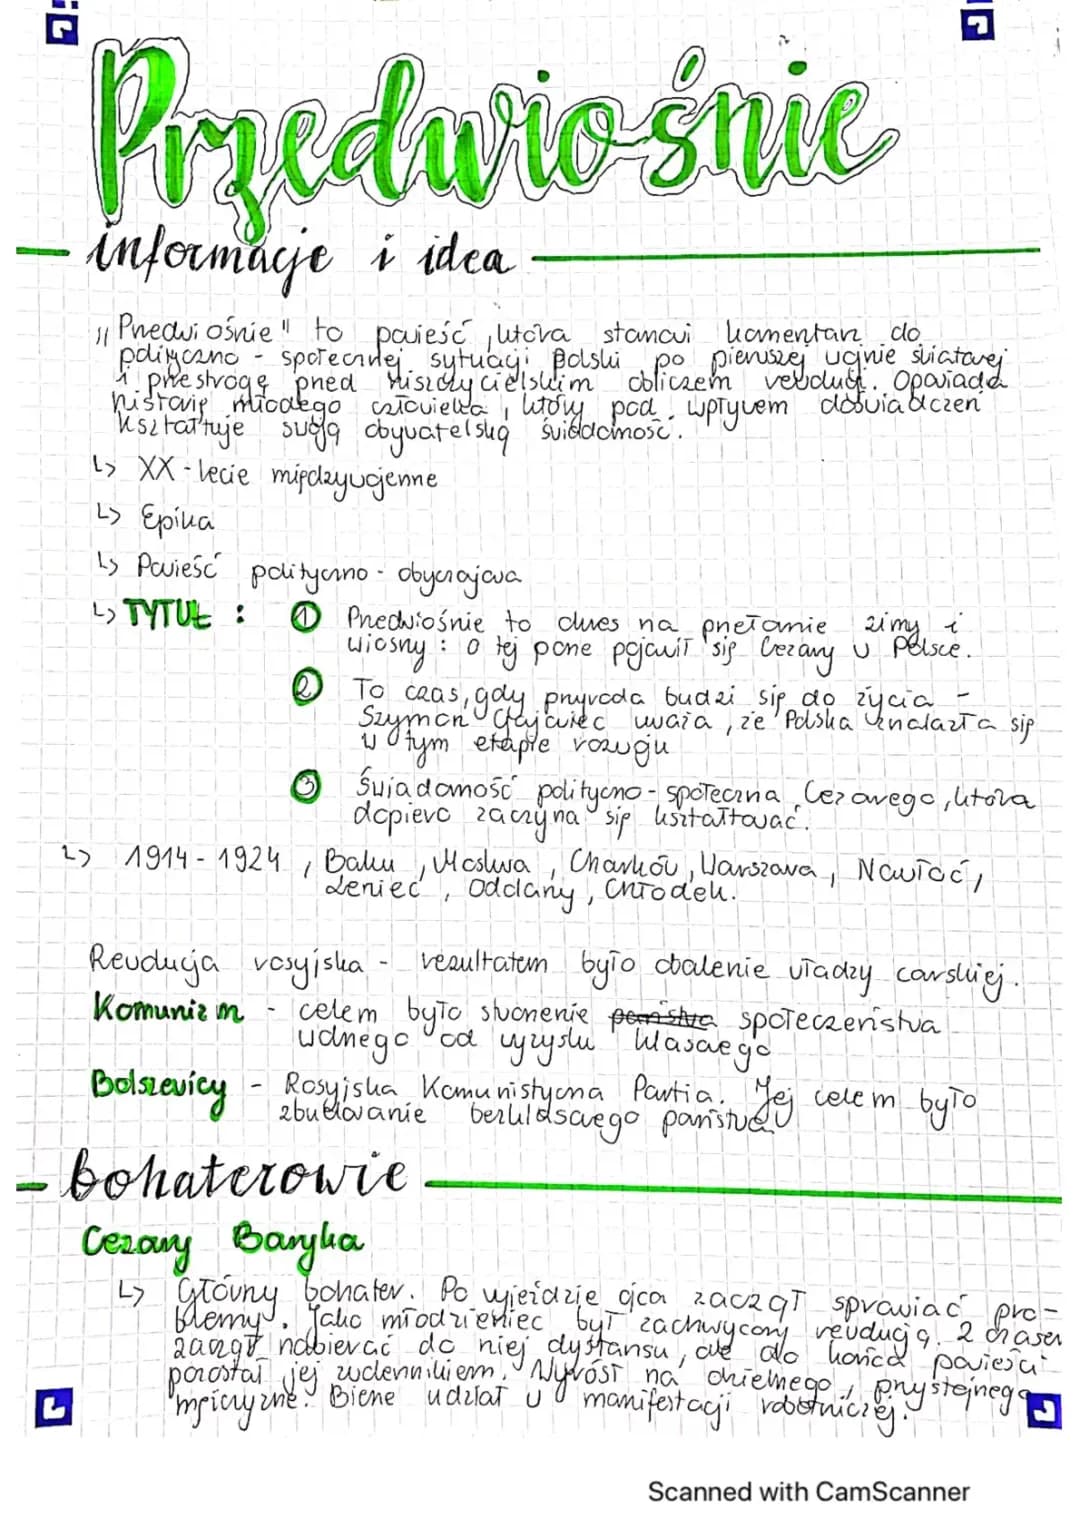 Przedwiośnie
informacje i idea
"Przedwiośnie" to powieść, która stanowi komentarz do
polityczno - społecznej sytuacji Polski po pierwszej wojnie światowej
i przestrogę przed niszczycielskim obliczem rewolucji. Opowiada
historię młodego człowieka, który pod wpływem doświadczeń
kształtuje swoją obywatelską świadomość.
↳ XX-lecie międzywojenne
↳ Epika
↳ Powieść polityczno - obyczajowa
↳ TYTUŁ : ① Przedwiośnie to okres na przełomie zimy i
wiosny : o tej porze pojawił się Cezary w Polsce.
② To czas, gdy przyroda budzi się do życia -
Szymon Gajowiec uważa, że Polska znalazła się
w tym etapie rozwoju
③ Świadomość polityczno - społeczna Cezarego, która
dopiero zaczyna się kształtować.
↳ 1914 - 1924, Baku, Moskwa, Charków, Warszawa, Nawłoć,
Leniec, Odolany, Chłodek.
Rewolucja rosyjska - rezultatem było obalenie władzy carskiej.
Komunizm - celem było stworzenie państwa społeczeństwa
wolnego od wyzysku klasowego
Bolszewicy - Rosyjska Komunistyczna Partia. Jej celem było
zbudowanie bezklasowego państwa
bohaterowie
Cezary Baryka
↳ Główny bohater. Po wyjeździe ojca zaczął sprawiać pro-
blemy. Jako młodzieniec był zachwycony rewolucją. Z czasem
zaczął nabierać do niej dystansu, ale do końca powieści
pozostał jej zwolennikiem. Wyrósł na dzielnego, przystojnego
mężczyznę. Bierze udział w manifestacji robotniczej.
Scanned with CamScanner